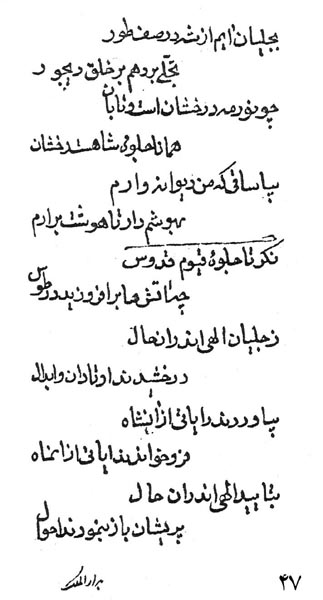 تجلیات ایم از شه در صف طور
تجلی برد هم بر خلق رنجور
چو نور مه درخشان است و تابان
همانا جلوهٔ شاهست رخشان
بیا ساقی که من دیوانه وارم
بهوشم دار تا هوشت برارم
نگر تا جلوهٔ قیوم قدوس
چه اتش‌ها برافروزید در طوس
ز جلیان الهی اندران حال
درخشیدند اوتادان و ابدال
بیاوردند ایاتی از انشاه
فروخواندند ایاتی از انماه
بتایید الهی اندران حال
پریشان باز بنمودند احوال
۴۷